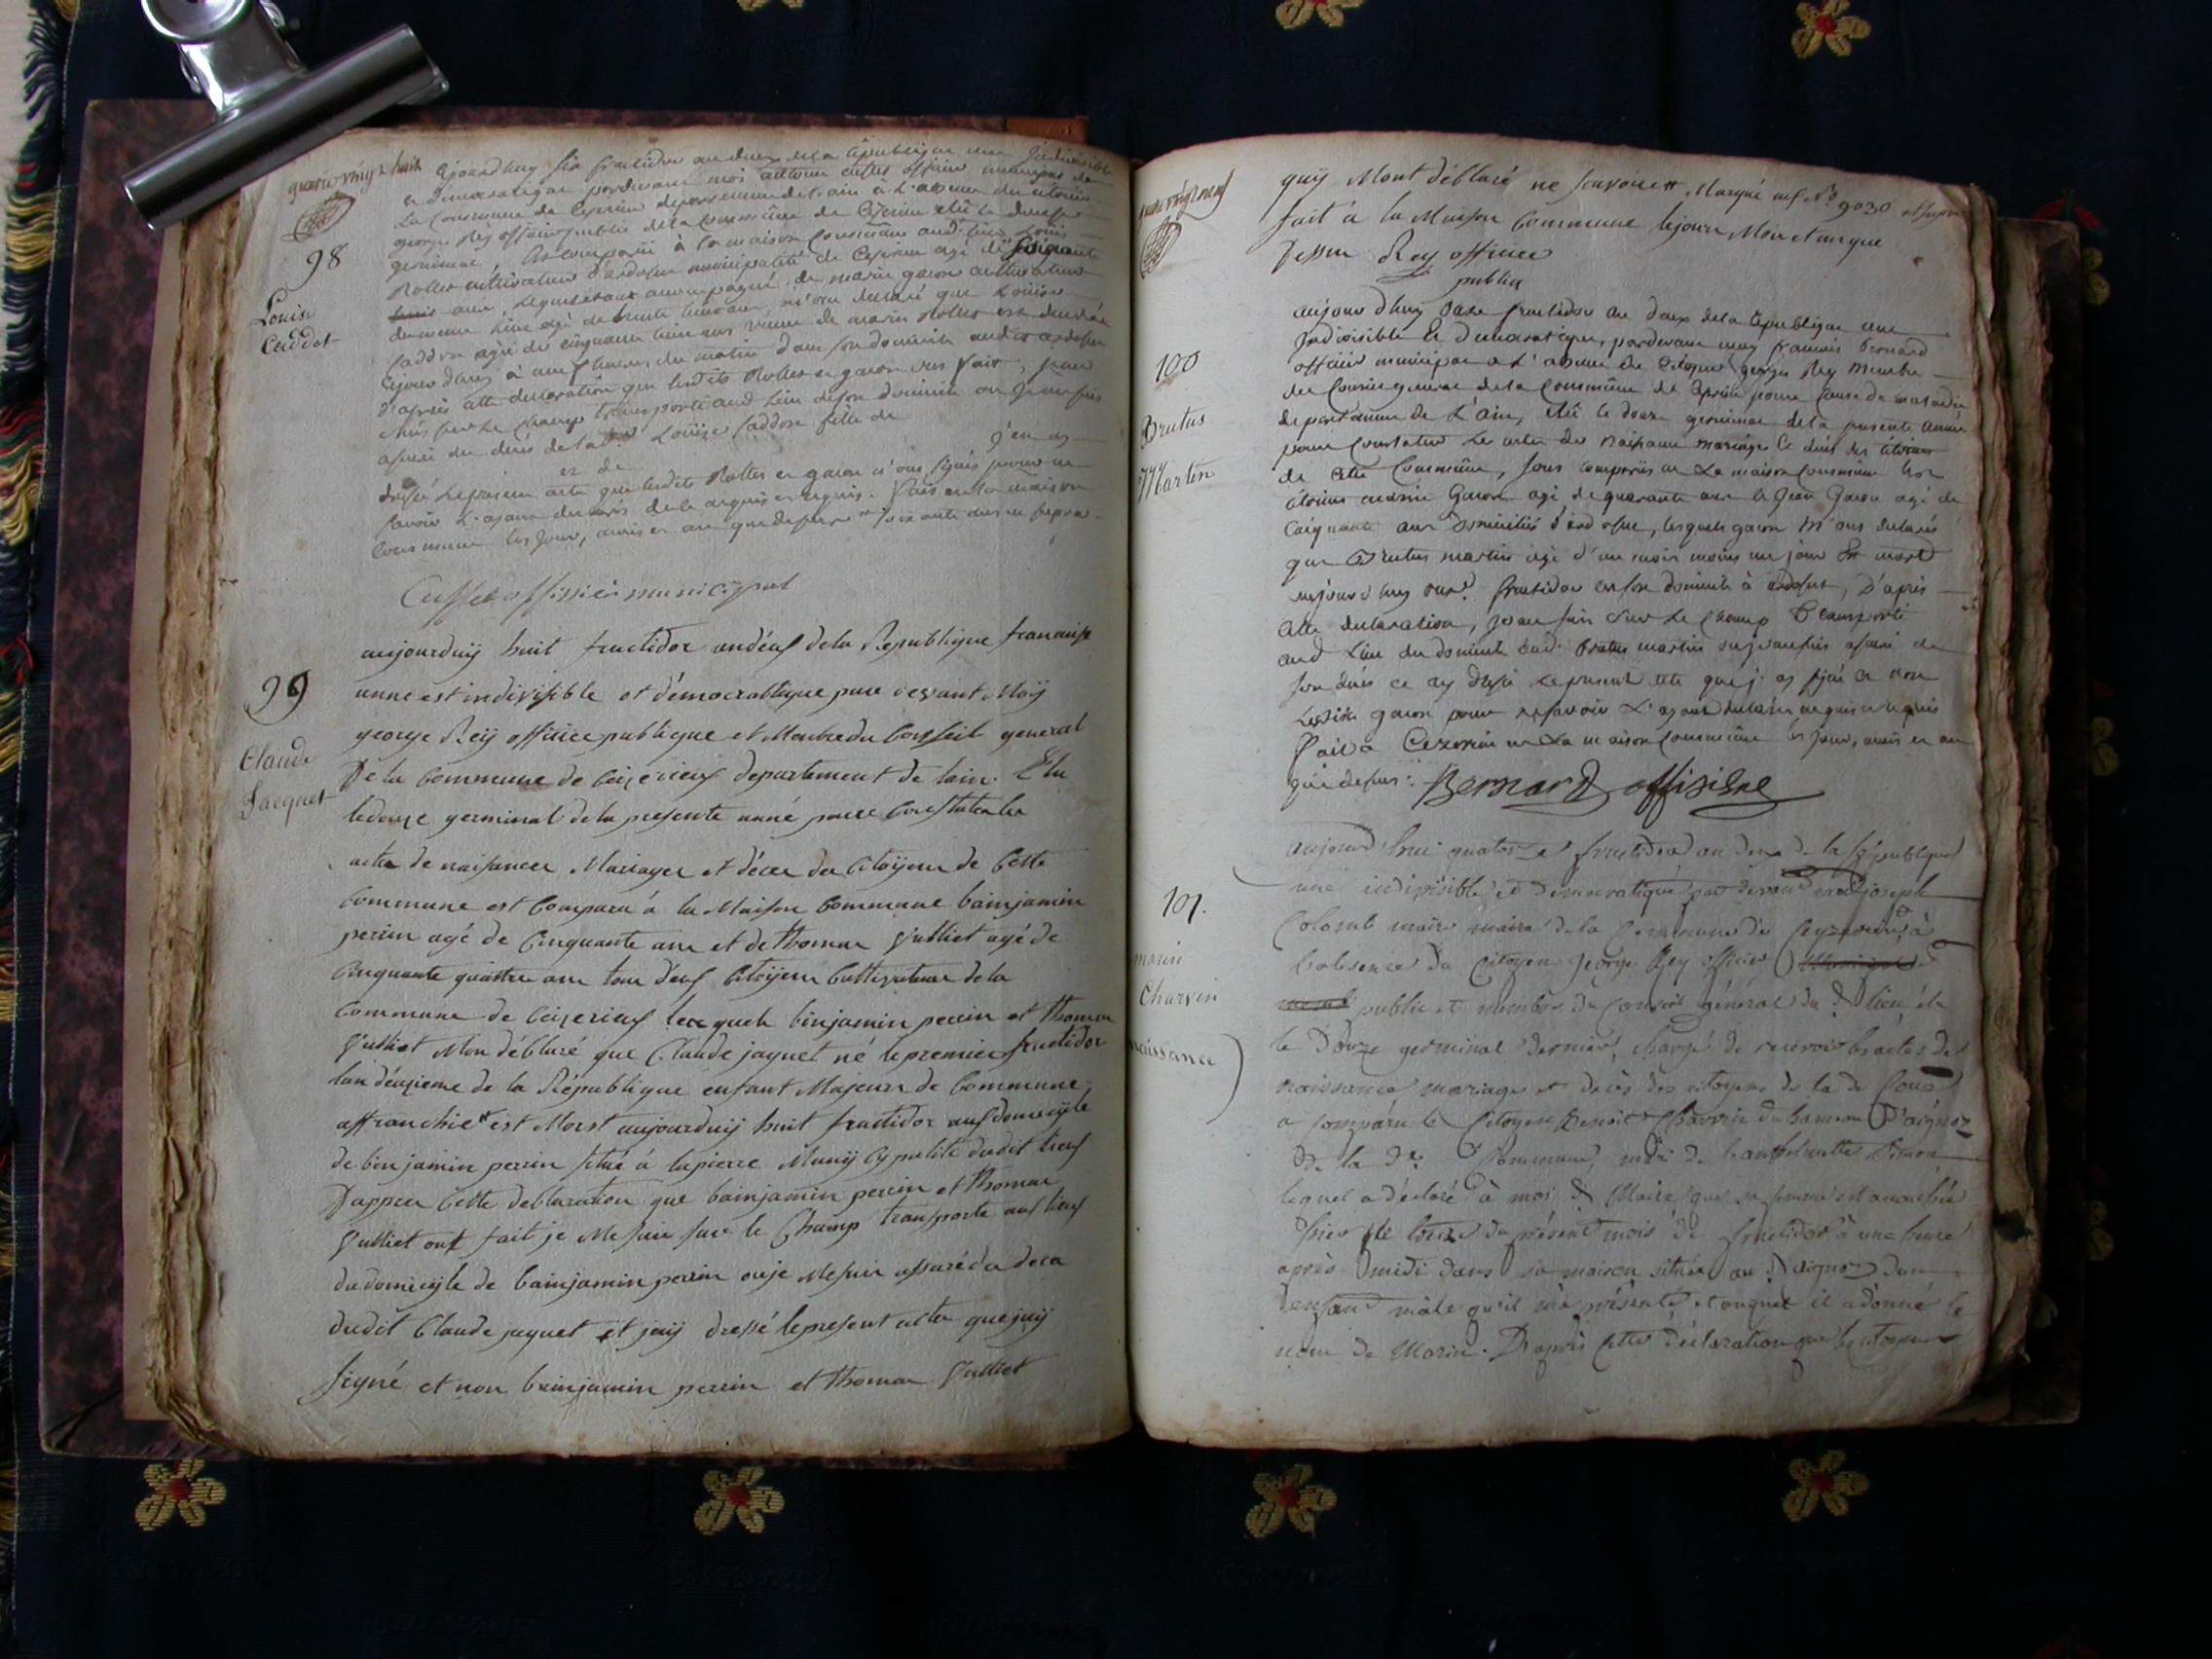 quatre vingt huit
98
Louise
Caddot
aujourdhuy six fructidor an deux de la République une Indivisible
et démocratique pardevant moi officier municipal de
la Commune de département de l'ain a l'absence du citoyen
george Rey officier public de la Commune de élû le douze
germinal, à la maison Commune Louis
Rollet cultivateur municipalité de agé de soixante
ans, lequel étant accompagné de marin gacon cultivateur
du meme lieu agé de trente huit ans m'ont declaré que Louise
Caddot agée de cinquante huit ans veuve de marin Rollet est decedée
aujourdhuy à neuf heures du matin dans son domicile
d'après cette declaration que lesdits Rollet et gacon ont fait, je me
suis sur le champ transporté aud. lieu de son domicile ou je me suis
assuré du décès de lad. Louise Caddot fille de
et de j'en ay
dressé le présent acte que lesdits Rollet et gacon n'ont signé pour ne
savoir de le enquis et requis. fait en la maison
Commune les jour, mois et an que dessus
officier municipal
99
Claude
Jacquet
aujourduij huit fructidor andeuf dela Republique francaise
unne est indivisible et démocrattique pare devant Moij
george Reij officice publique et Menbre du Conseil general
De la Commune de Ceizerieuf departement de lain. Elu
ledouze germinal dela presente anné pour Constater les
actes de naisances Mariages et décès des Citoijens de Cette
Commune est Comparu á la Maison Commune bainjamin
perrin agé de Cinquante ans et de thomas Vulliet agé de
Cinquante quattre ans tous deuf Citoijens Cultivateurs dela
Commune de Ceizerieuf lesquels binjamin perrin et thomas
Vulliet Mon déblaré que Claude jaquet né le premier fructidor
lan deuzieme de la République enfant Majeur de Commune
affranchie est Mort aujourduij huit fructidor auf domicijle
de binjamin perrin situé á lapierre Municijpalité dudit lieuf
D'appres Cette deblaration que bainjamin perrin et thomas
Vulliet ont fait je Me suis sur le Champ transporté auf lieuf
du domicijle de bainjamin perrin ouje Mesuis assuré du deces
dudit Claude jaquet et jaij dressé lepresent acte quejaij
signé et non bainjamin perrin et thomas Vulliet
quatre vingt neuf
quij Mont déblaré ne scavoire Marqué 9030
fait á la Maison Commune lejour Mois et an que
Dessus Reij officier
publiq
100
Brutus
Martin
aujourdhuy onze fructidor an deux dela République une
Indivisible et démocratique, pardevant moy francois Bernard
officier municipal a l'absence du Citoyen georges Rey membre
du Conseil general dela Commune de pour cause de maladie
departement de L'ain, elû le douze germinal dela presente année
pour constater les actes de naissances mariages et décès des citoiens
de cette Commune, sont comparus en la maison Commune les
citoiens marin Gacon agé de quarante ans et Jean Gacon agé de
Cinquante ans domiciliés lesquels gacon m'ont declarés
que Brutus martin agé d'un mois moins un jour est mort
aujourdhuy onze fructidor en son domicile à D'après
cette declaration, je me suis sur le champ transporté
aud. lieu du domicile dud. Brutus martin ou je me suis assuré de
son décès et ay dressé le present acte que j'ay signé et non
lesdits gacon pour ne savoir enquis et requis
fait à Cezerieu en la maison Commune les jour, mois et an
que dessus: Bernard offisiere
101.
marin
Charvin
naissance
aujourd'hui quatorze fructidor an deux de la république
une indivisible et démocratique par devant moi joseph
Colomb maire de la Commune de Ceyzerieu, à
l'absence du Citoyen George Rey officier
public et membre du conseil général du d. lieu, élu
le Douze germinal dernier, chargé de recevoir les actes de
naissance, mariage et décès des citoyens de la de. Coue
a comparu le Citoyen Benoit Charvin du hameau D'aignoz
de la de. Commune, mari de Simon
lequel a déclaré à moi d. Maire, que sa femme est accouchée
hier le treize du présent mois de fructidor à une heure
après midi dans sa maison située au d. aignoz d'un
enfant mâle qu'il m'a présenté et auquel il a donné le
nom de Marin. D'après cette déclaration que le citoyen